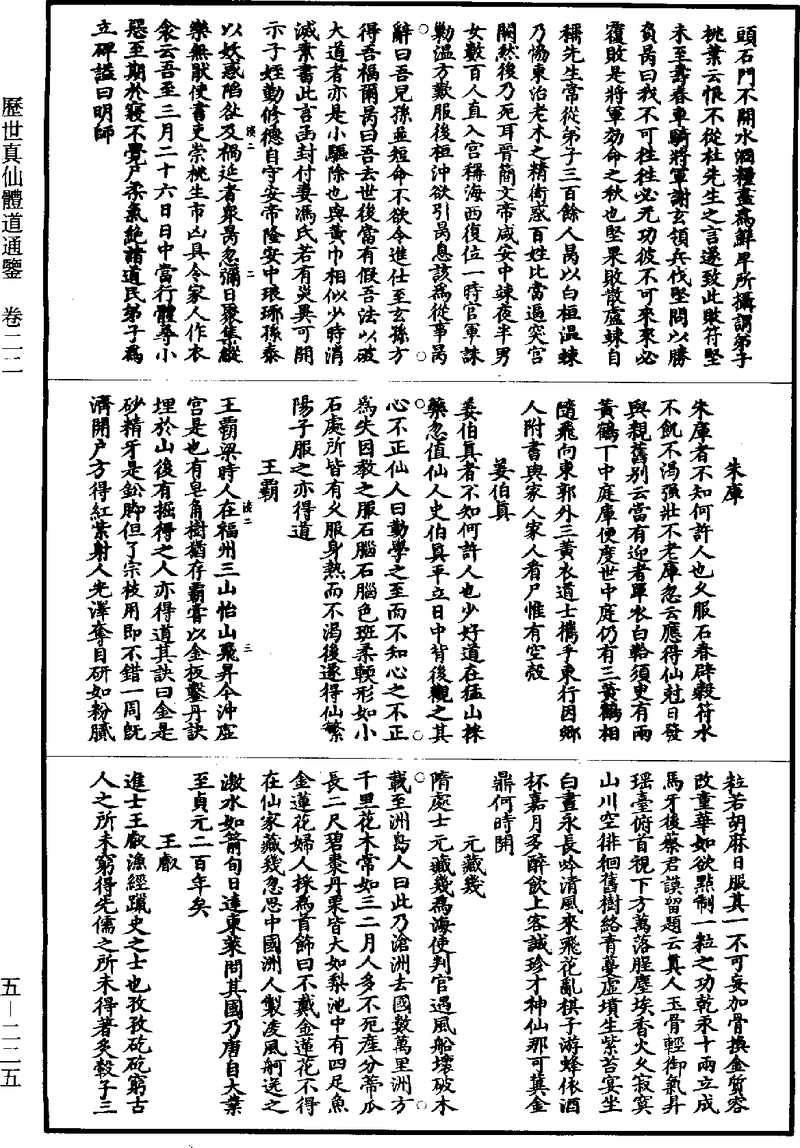 頭石門不開水涸糧盡爲鮮卑所攝謂弟子
桃葉云恨不從杜先生之言遂致此敗符堅
未至壽春車騎將軍謝玄領兵伐堅問以勝
負昺曰我不可往往必无功彼不可來來必
覆敗是將軍効命之秋也堅果敗散盧竦自
稱先生常從弟子三百餘人昺以白桓温竦
乃協東治老木之精衒惑百姓比當逼突宫
闕然後乃死耳晉簡文帝咸安中竦夜半男
女數百人直入宫稱海西復位一時官軍誅
勦温方歎服後桓沖欲引昺息該爲從事昺
辭曰吾兒孫並短命不欲令進仕至玄孫方
得吾福爾昺曰吾去世後當有假吾法以破
大道者亦是小驅除也與黄巾相似少時消
滅素書此言函封付妻馮氏若有災異可開
示子姪勤修德自守安帝隆安中琅瑘孫泰
以妖惑陷咎及禍延者衆昺忽彌日聚集縱
樂無猒使書吏崇桃生市凶具令家人作衣
衾云吾至三月二十六日日中當行體尋小
惡至期於寢不覺尸柔氣絶諸道民弟子爲
立碑諡曰明師
朱庫
朱庫者不知何許人也久服石春辟穀符水
不飢不渴强壯不老庫忽云應得仙尅日發
與親舊别云當有迎者單衣白幍須臾有兩
黄鶴下中庭庫便度世中庭仍有三黄鶴相
隨飛向東郭外三黄衣道士攜手東行因鄉
人附書與家人家人看尸惟有空殻
姜伯真
姜伯真者不知何許人也少好道在猛山採
藥忽值仙人史伯真平立日中背後觀之其
心不正仙人曰勤學之至而不知心之不正
爲失因教之服石腦石腦色班柔輭形如小
石處所皆有久服身熱而不渴後遂得仙繁
陽子服之亦得道
王霸
王霸梁時人在福州三山怡山飛昇今沖虚
宫是也有皂角樹猶存霸嘗以金板鏨丹訣
埋於山後有掘得之人亦得道其訣曰金是
砂精牙是鈆脚但了宗枝用即不錯一周旣
濟開户方得紅紫射人光澤奪目研如粉膩
粒若胡麻日服其一不可妄加骨換金質容
改童華如欲點制一粒之功乾汞十兩立成
馬牙後蔡君謨留題云真人玉骨輕御氣昇
瑶臺俯首視下方萬落腥塵埃香火久寂寞
山川空徘徊舊樹絡青蔓虚墳生紫苔宴坐
白晝永長吟清風來飛花亂棋子游蜂依酒
杯嘉月多醉飲上客誠珍才神仙那可冀金
鼎何時開
元藏幾
隋處士元藏幾爲海使判官遇風船壞破木
載至洲島人曰此乃滄洲去國數萬里洲方
千里花木常如三二月人多不死產分蒂瓜
長二尺碧棗丹栗皆大如梨池中有四足魚
金蓮花婦人採爲首飾曰不戴金蓮花不得
在仙家藏幾忽思中國洲人製凌風舸送之
激水如箭旬日達東萊問其國乃唐自大業
至貞元二百年矣
王叡
進士王叡漁經躐史之士也孜孜矻矻窮古
人之所未窮得先儒之所未得著炙轂子三
歷世真仙體道通鑒　卷二二
五—二二五